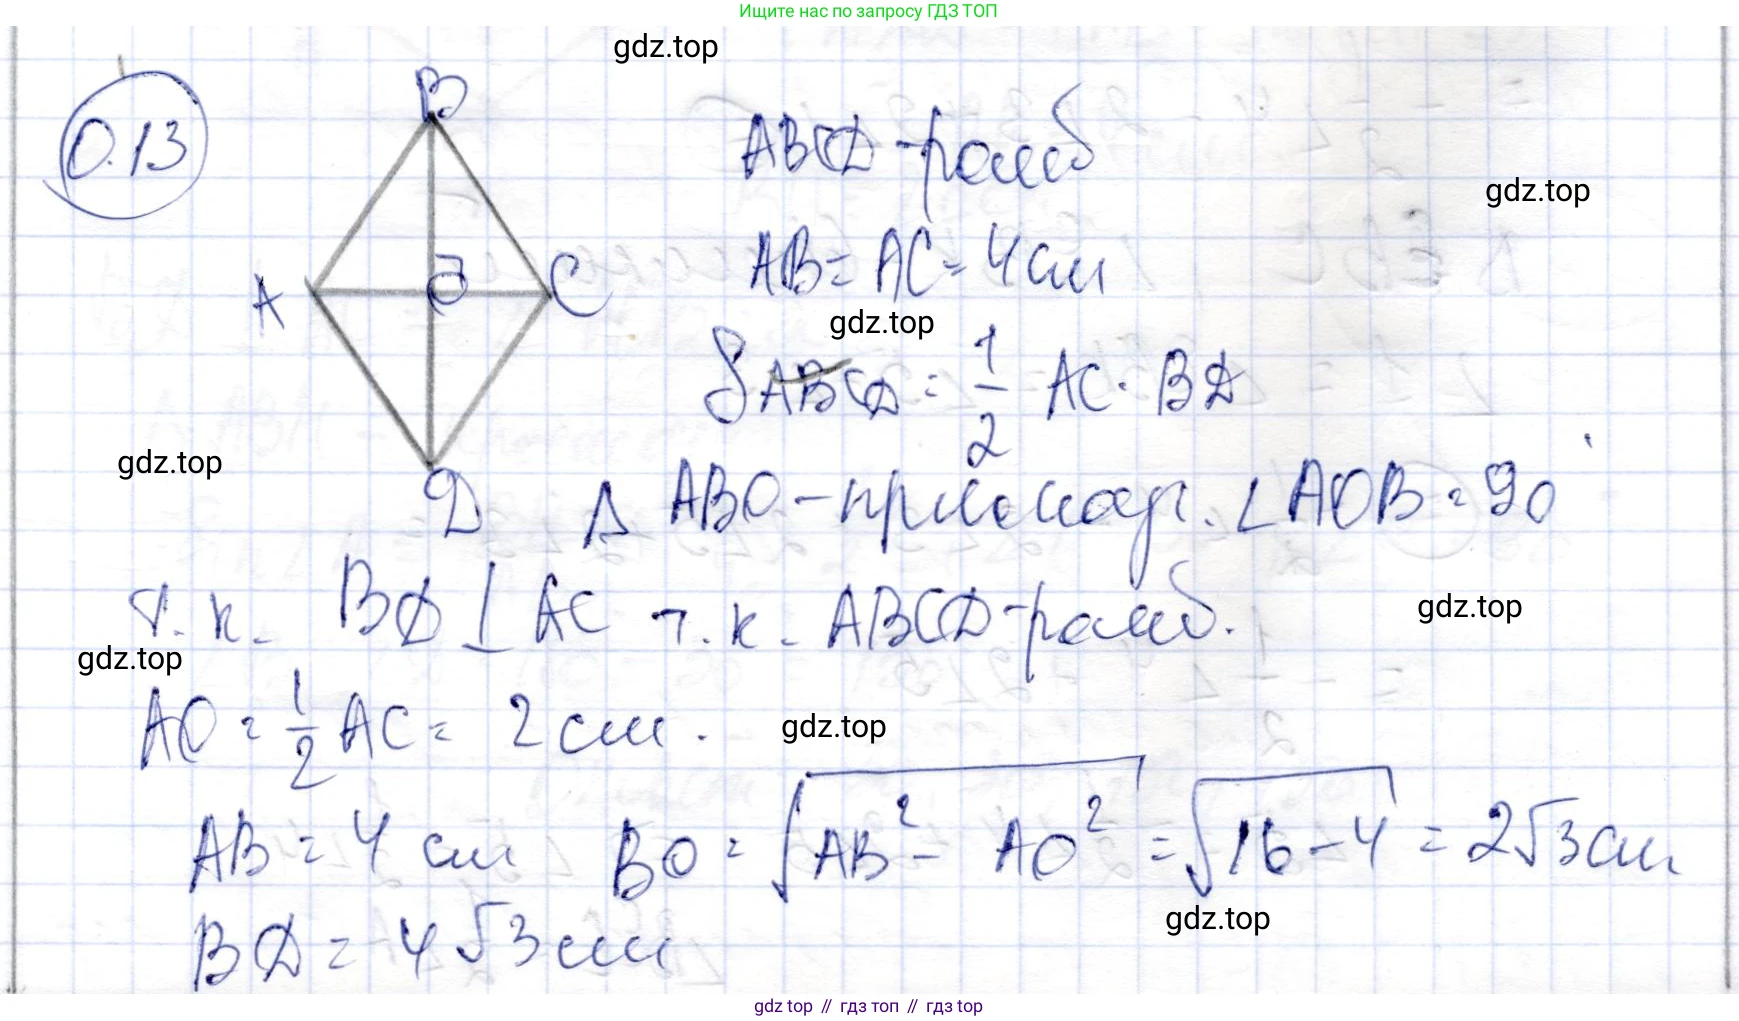 Ищите нас по запросу ГДЗ ТОП
gdz.top
0.13
B
ABCD - ромб
gdz.top
A O C
AB = AC = 4 см
gdz.top
S ABCD = 1/2 AC · BD
gdz.top
D
Δ ABO - прямоуг. ∠ AOB = 90°
т. к. BD ⊥ AC т. к. ABCD - ромб.
gdz.top
gdz.top
AO = 1/2 AC = 2 см.
gdz.top
AB = 4 см BO = √(AB² - AO²) = √(16 - 4) = 2√3 см
gdz.top
BD = 4√3 см
gdz top // гдз топ // гдз top